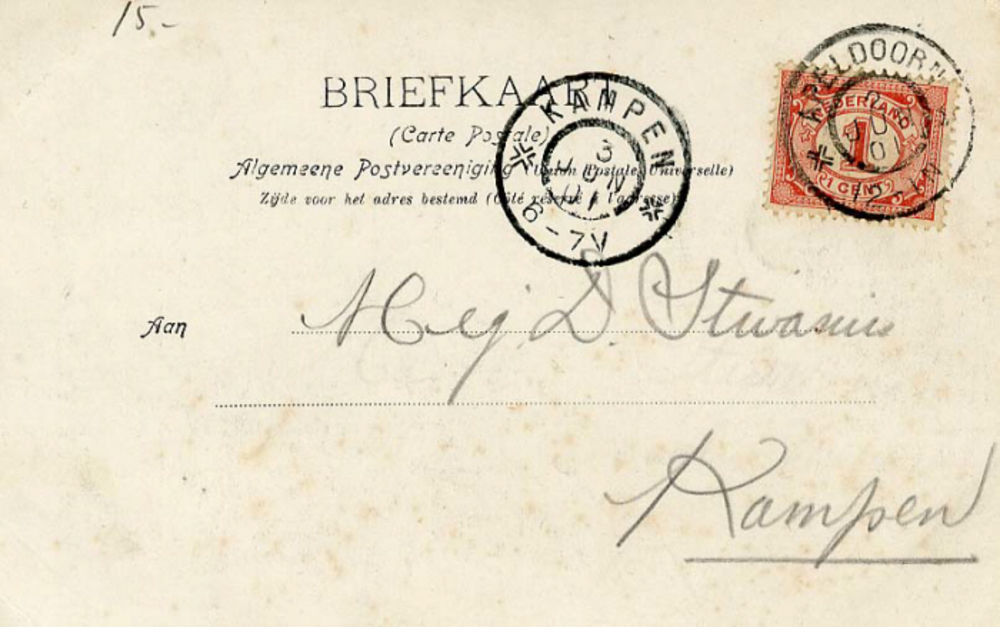 15.-
BRIEFKAART
(Carte Postale)
Algemeene Postvereeniging (Union Postale Universelle)
Zijde voor het adres bestemd (Côté réservé à l'adresse)
KAMPEN
3
JUN
01
6-7V
APELDOORN
JUN
01
12-1N
NEDERLAND
1
1 CENT
Aan
Mej. D. Stuasius
Kampen